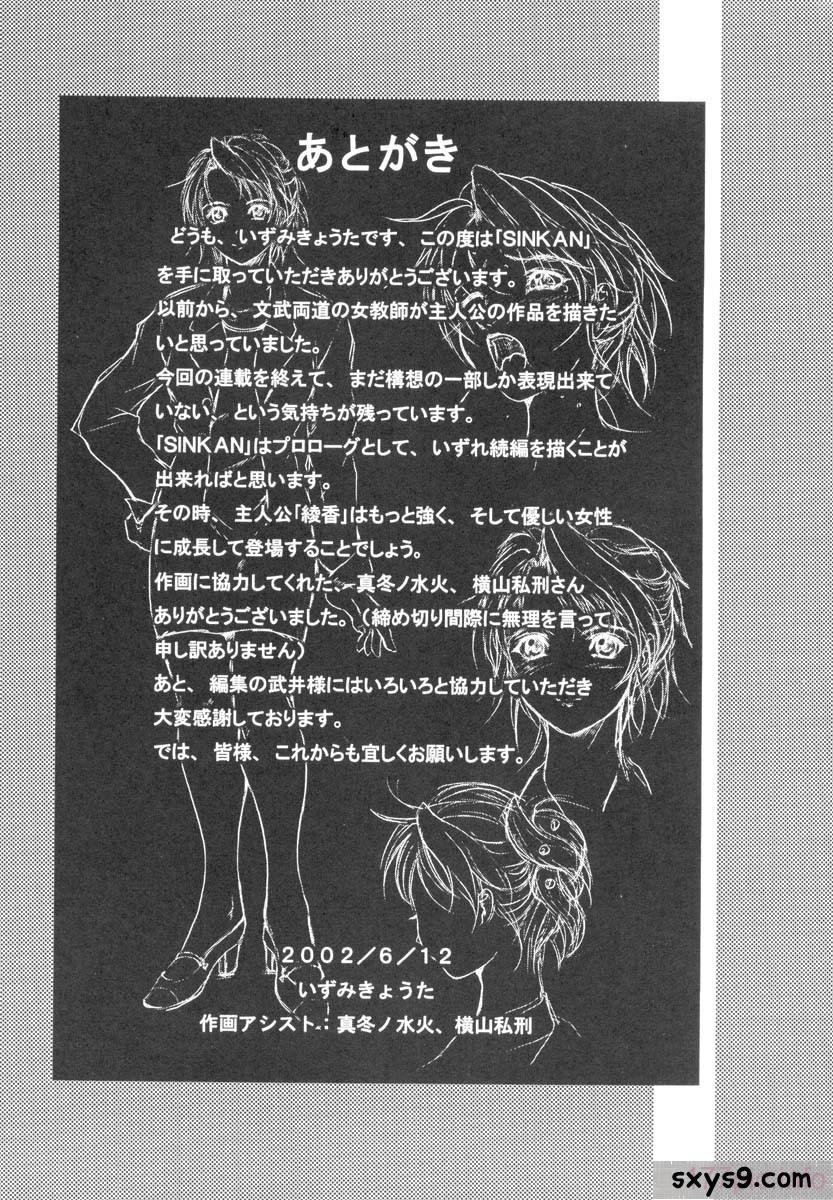 あとがき
どうも、いずみきょうたです、この度は「SINKAN」
を手に取っていただきありがとうございます。
以前から、文武両道の女教師が主人公の作品を描きた
いと思っていました。
今回の連載を終えて、まだ構想の一部しか表現出来て
いない、という気持ちが残っています。
「SINKAN」はプロローグとして、いずれ続編を描くことが
出来ればと思います。
その時、主人公「綾香」はもっと強く、そして優しい女性
に成長して登場することでしょう。
作画に協力してくれた、真冬ノ水火、横山私刑さん
ありがとうございました。（締め切り間際に無理を言って
申し訳ありません）
あと、編集の武井様にはいろいろと協力していただき
大変感謝しております。
では、皆様、これからも宜しくお願いします。
2002／6／12
いずみきょうた
作画アシスト：真冬ノ水火、横山私刑
sxys9.com